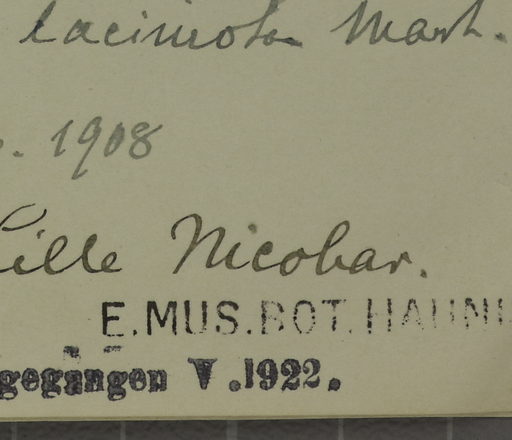 laciniosa Mart.
. 1908
Lille Nicobar.
E.MUS.BOT.HAUNI
gegangen V.1922.